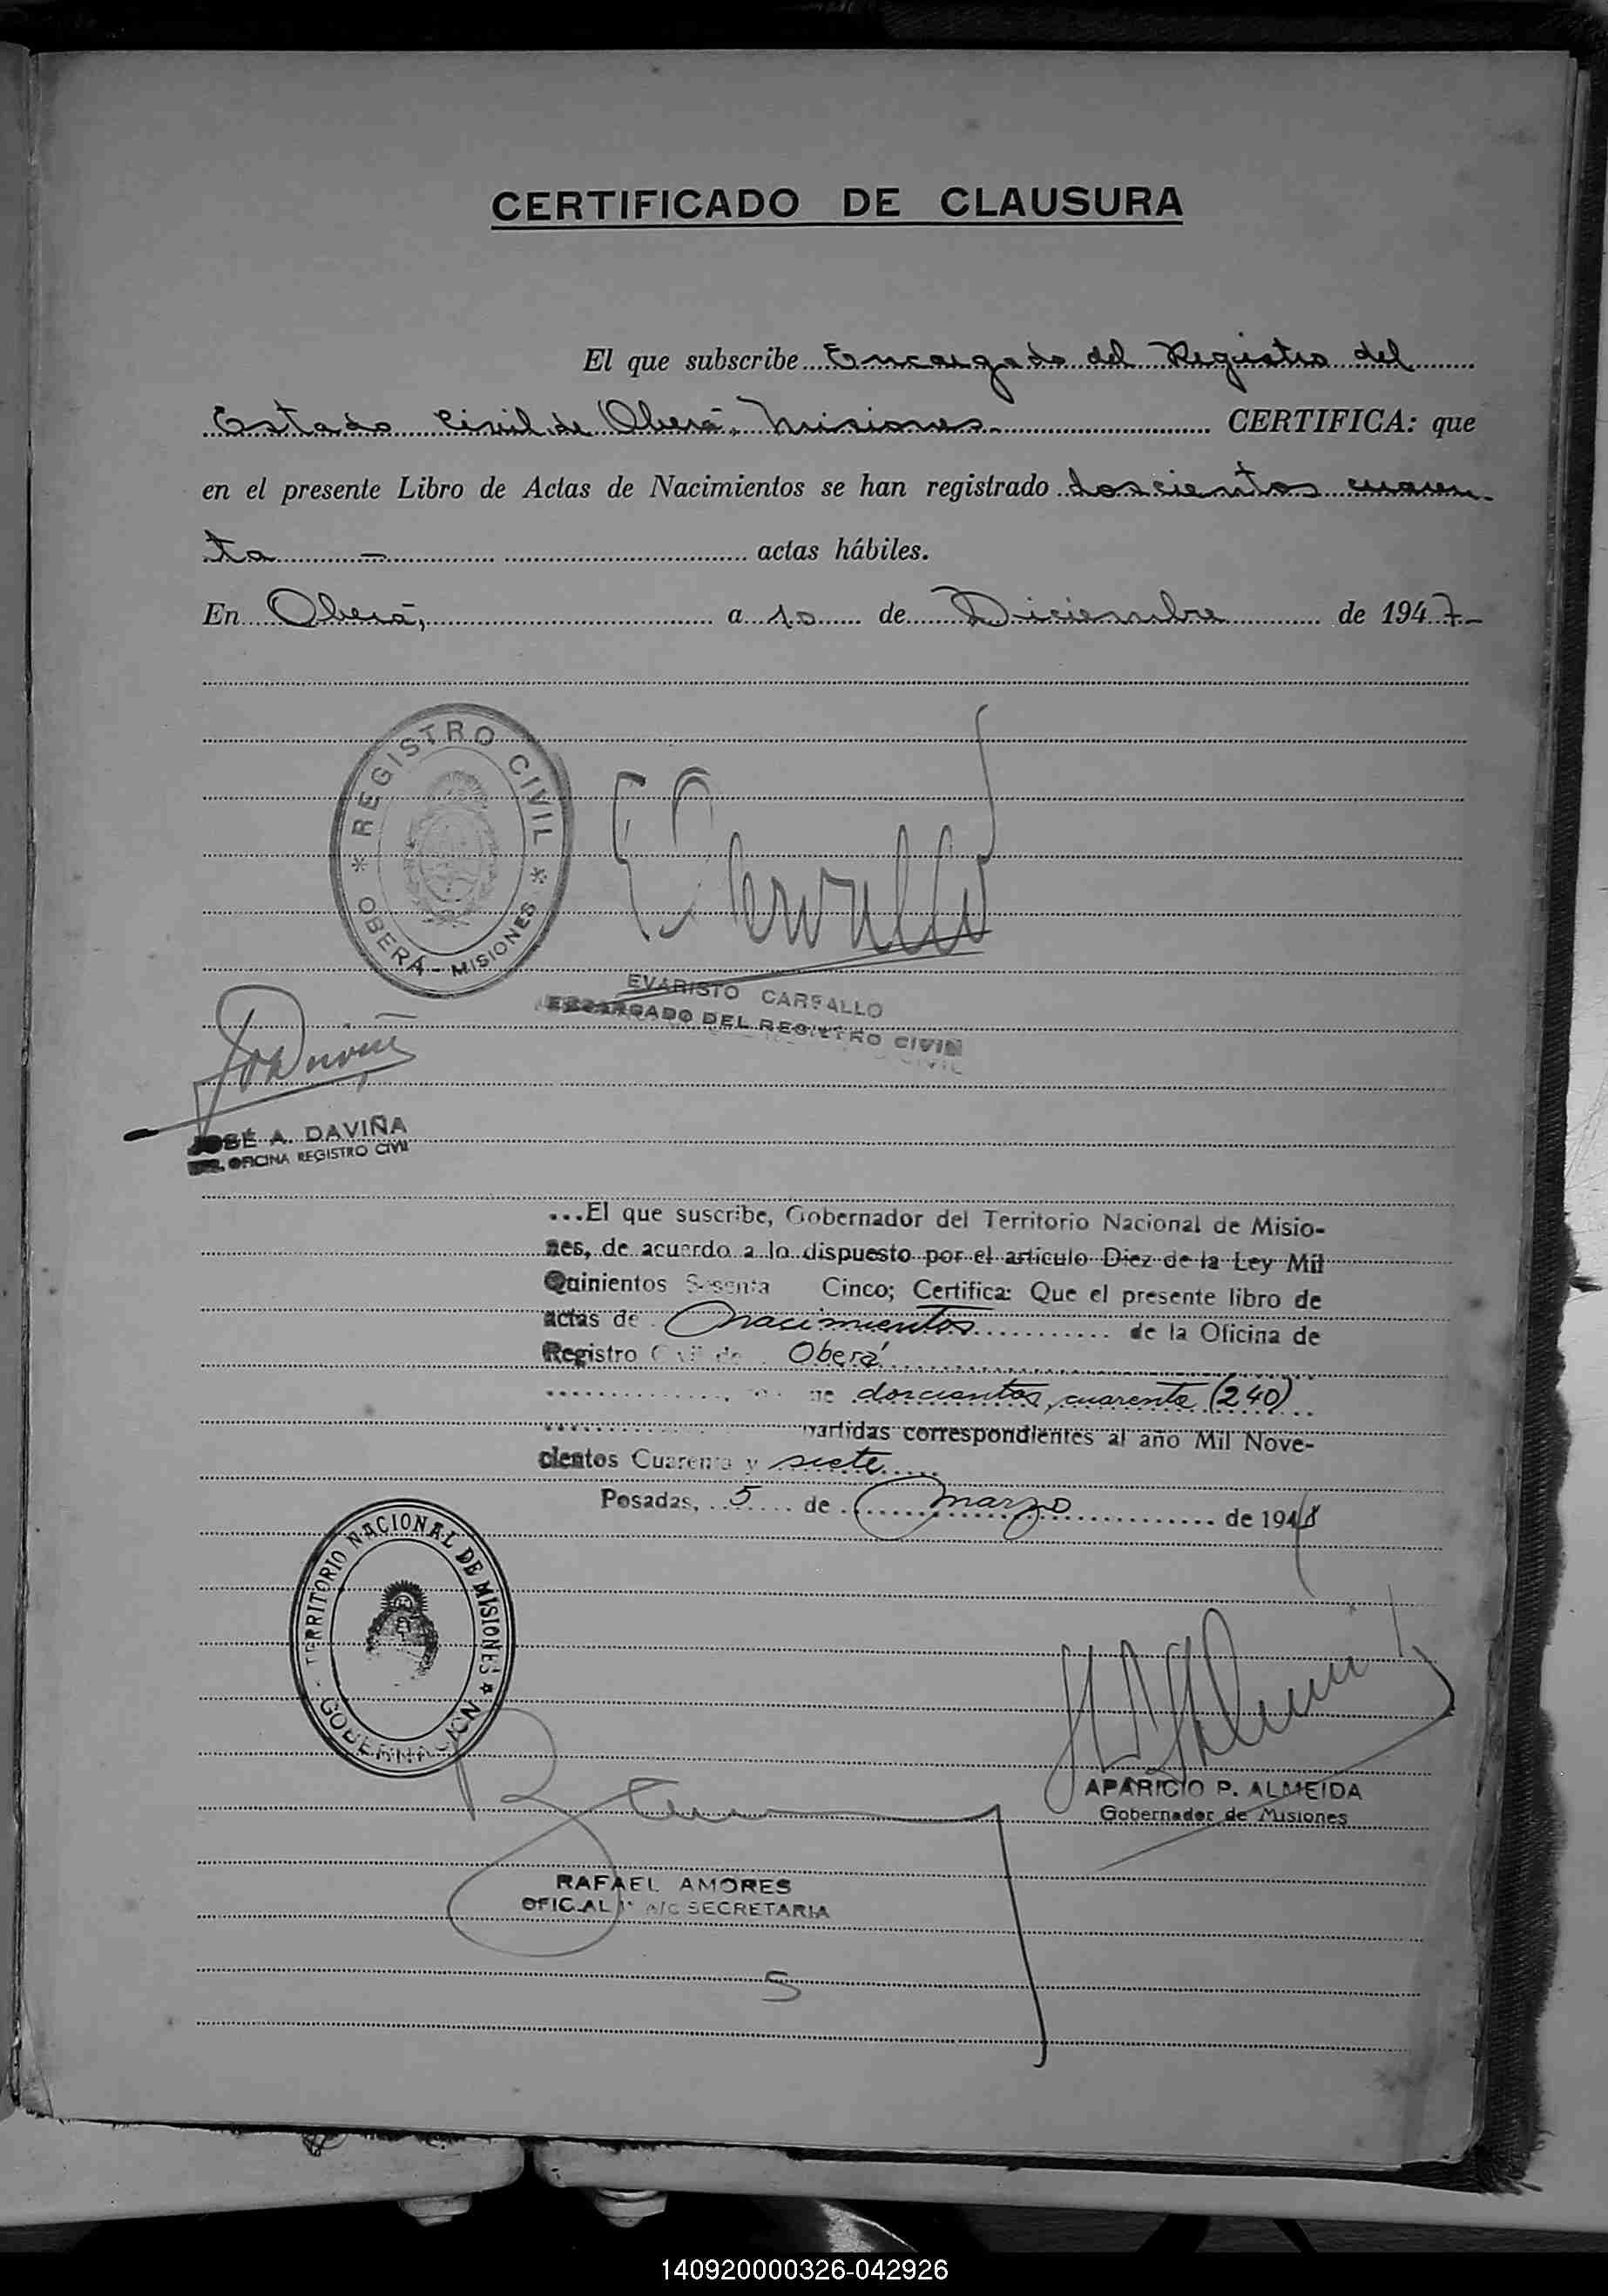 CERTIFICADO DE CLAUSURA
El que subscribe Encargado del Registro del
Estado Civil de Oberá, Misiones. CERTIFICA: que
en el presente Libro de Actas de Nacimientos se han registrado doscientos cuaren-
ta - actas hábiles.
En Oberá, a 10 de Diciembre de 1947-
REGISTRO CIVIL
OBERÁ - MISIONES
EVARISTO CARBALLO
ENCARGADO DEL REGISTRO CIVIL
JOSÉ A. DAVIÑA
OFICINA REGISTRO CIVIL
...El que suscribe, Gobernador del Territorio Nacional de Misio-
nes, de acuerdo a lo dispuesto por el artículo Diez de la Ley Mil
Quinientos Sesenta Cinco; Certifica: Que el presente libro de
actas de Nacimientos de la Oficina de
Registro Civil de Oberá
doscientos cuarenta (240)
partidas correspondientes al año Mil Nove-
cientos Cuarenta y siete
Posadas, 5 de marzo de 1948
TERRITORIO NACIONAL DE MISIONES
GOBERNACIÓN
APARICIO P. ALMEIDA
Gobernador de Misiones
RAFAEL AMORES
OFICIAL 1° A/C SECRETARIA
5
140920000326-042926